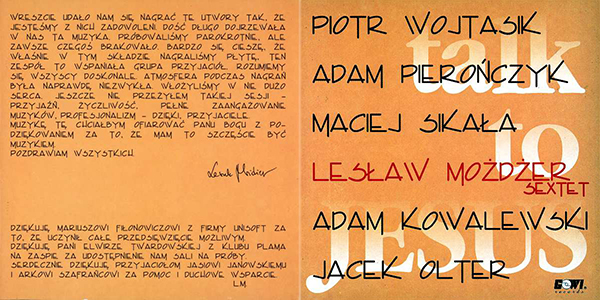 WRESZCIE UDAŁO NAM SIĘ, NAGRAĆ TE UTWORY TAK, ŻE
JESTEŚMY Z NICH ZADOWOLENI. DOŚĆ DŁUGO DOJRZEWAŁA
W NAS TA MUZYKA. PRÓBOWALIŚMY PAROKROTNIE, ALE
ZAWSZE CZEGOŚ BRAKOWAŁO. BARDZO SIĘ, CIESZĘ, ŻE
WŁAŚNIE W TYM SKŁADZIE NAGRALIŚMY PŁYTĘ, TEN
ZESPÓŁ TO WSPANIAŁA GRUPA PRZYJACIÓŁ. ROZUMIEMY
SIĘ WSZYSCY DOSKONALE. ATMOSFERA PODCZAS NAGRAŃ
BYŁA NAPRAWDĘ NIEZWYKŁA. WŁOŻYLIŚMY W NIE DUŻO
SERCA. JESZCZE NIE PRZEŻYŁEM TAKIEJ SESJI -
PRZYJAŹŃ, ŻYCZLIWOŚĆ, PEŁNE ZAANGAŻOWANIE
MUZYKÓW, PROFESJONALIZM - DZIĘKI, PRZYJACIELE.
MUZYKĘ TĘ CHCIAŁBYM OFIAROWAĆ PANU BOGU Z PO-
DZIĘKOWANIEM ZA TO, ŻE MAM TO SZCZĘŚCIE BYĆ
MUZYKIEM.
POZDRAWIAM WSZYSTKICH.
DZIĘKUJĘ, MARIUSZOWI FILONOWICZOWI Z FIRMY UNISOFT ZA
TO, ŻE UCZYNIŁ CAŁE PRZEDSIĘWZIĘCIE MOŻLIWYM.
DZIĘKUJĘ, PANI ELWIRZE TWARDOWSKIEJ Z KLUBU PLAMA
NA ZASPIE ZA UDOSTĘPNIENIE NAM SALI NA PRÓBY.
SERDECZNIE DZIĘKUJĘ, PRZYJACIOŁOM JASIOWI JANOWSKIEMU
I ARKOWI SZAFRAŃCOWI ZA POMOC I DUCHOWE WSPARCIE.
L.M.
PIOTR WOJTASIK
talk
ADAM PIEROŃCZYK
MACIEJ SIKAŁA
to
LESŁAW MOŻDŻER
SEXTET
ADAM KOWALEWSKI
JESUS
JACEK OLTER
GOWI.
records